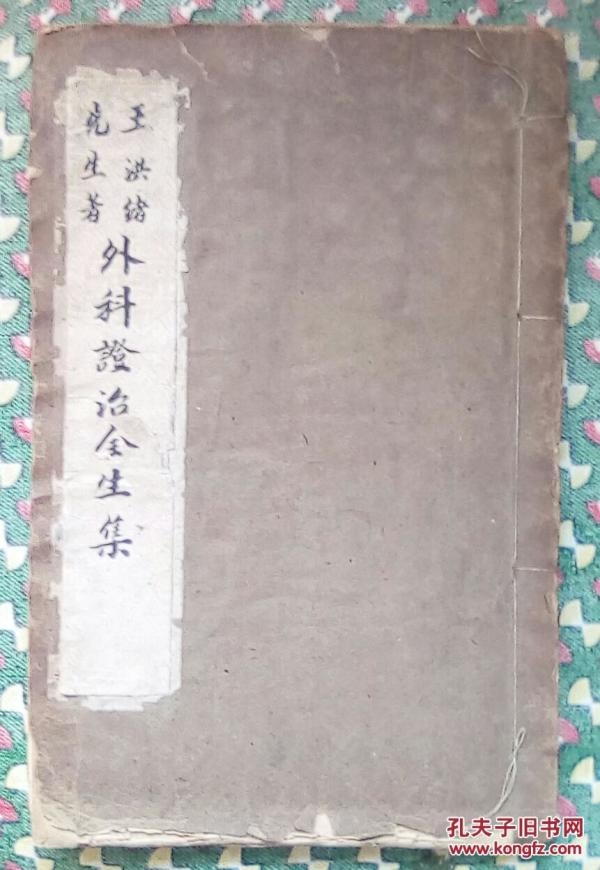 王洪緒
先生著
外科證治全生集
孔夫子旧书网
www.kongfz.com